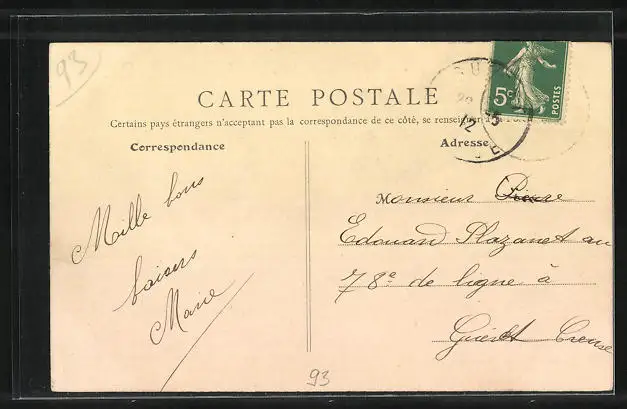 93
CARTE POSTALE
5c
POSTES
12
Certains pays étrangers n'acceptant pas la correspondance de ce côté, se renseigner
Correspondance
Adresse
Mille bons
baisers
Marie
Monsieur
Edouard Plazanet au
78e de ligne à
Guéret Creuse
93